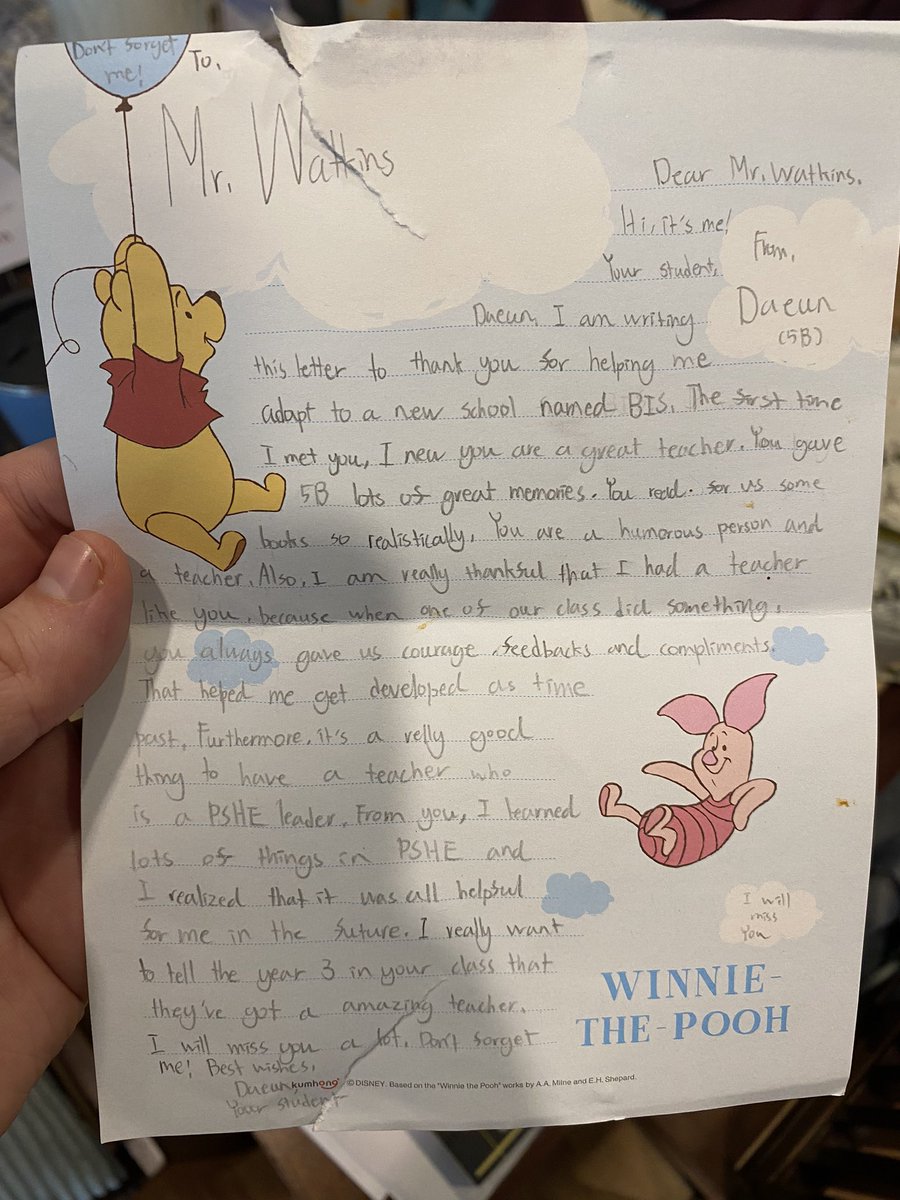 Don't forget
me!
To,
Mr. Watkins
Dear Mr. Watkins.
Hi, it's me!
Your student,
From,
Daeun
(5B)
Daeun, I am writing
this letter to thank you for helping me
adapt to a new school named BIS. The first time
I met you, I new you are a great teacher. You gave
5B lots of great memories. You read. for us some
books so realistically, You are a humorous person and
a teacher. Also, I am really thankful that I had a teacher
like you, because when one of our class did something,
you always gave us courage, feedbacks and compliments.
That heped me get developed as time
past. Furthermore, it's a relly good
thing to have a teacher who
is a PSHE leader. From you, I learned
lots of things in PSHE and
I realized that it was all helpful
for me in the future. I really want
to tell the year 3 in your class that
they've got a amazing teacher.
I will miss you a lot. Don't forget
me! Best wishes,
Daeun,
Your student
I will
miss
You
WINNIE-
THE-POOH
kumhong © DISNEY. Based on the "Winnie the Pooh" works by A.A. Milne and E.H. Shepard.